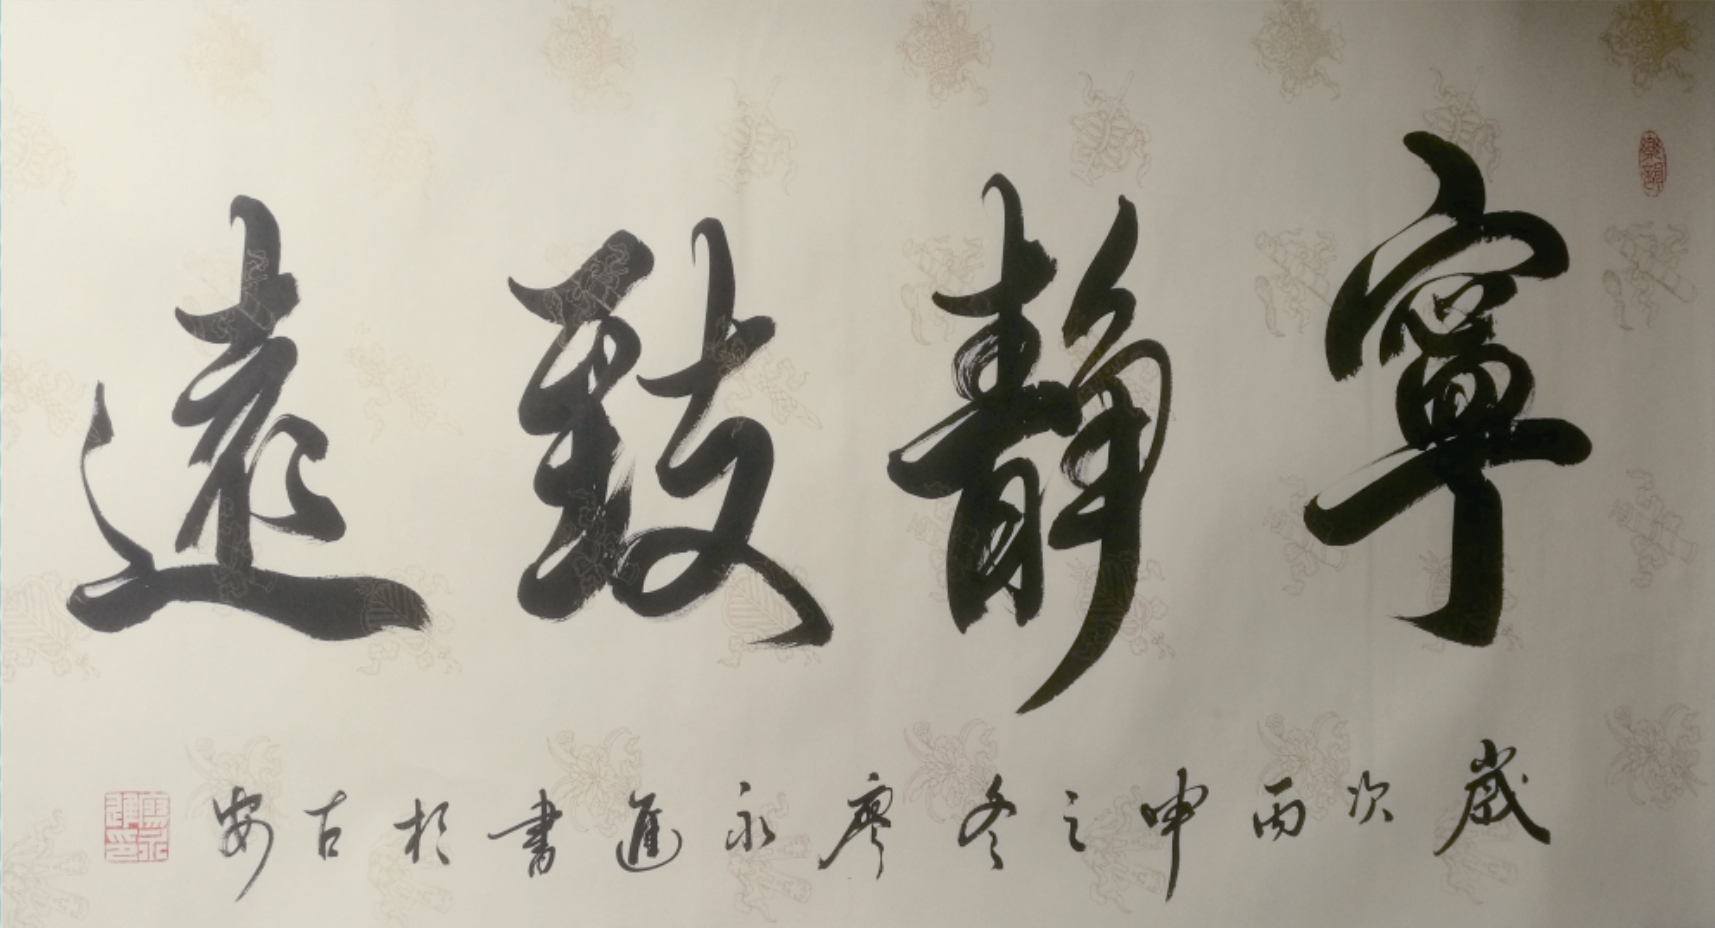 寧靜致遠
歲次丙申之冬廖永進書於古安